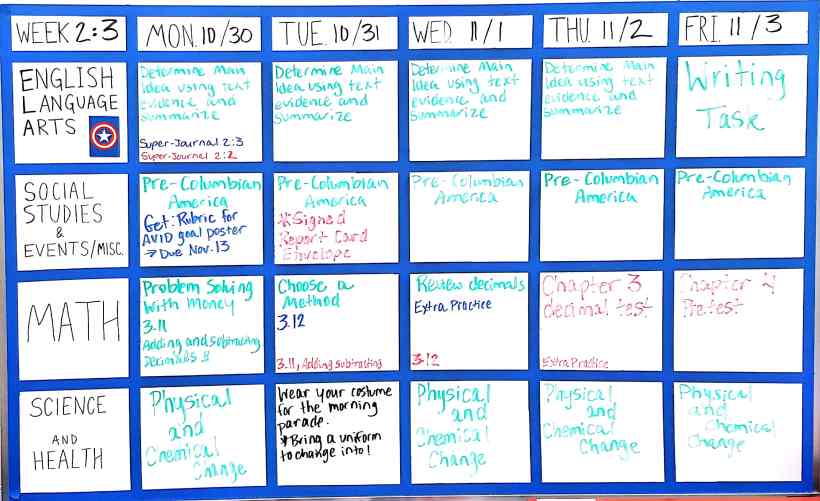 WEEK 2:3
MON. 10/30
TUE. 10/31
WED 11/1
THU. 11/2
FRI. 11/3
ENGLISH
LANGUAGE
ARTS
Determine Main
Idea using text
evidence and
summarize
Super-Journal 2:3
Super-Journal 2:2
Determine Main
Idea using text
evidence and
summarize
Determine Main
Idea using text
evidence and
summarize
Determine Main
Idea using text
evidence and
summarize
Writing
Task
SOCIAL
STUDIES
&
EVENTS/MISC.
Pre-Columbian
America
Get: Rubric for
AVID goal poster
→ Due Nov. 13
Pre-Columbian
America
*Signed
Report Card
Envelope
Pre-Columbian
America
Pre-Columbian
America
Pre-Columbian
America
MATH
Problem Solving
With Money
3.11
Adding and subtracting
Decimals
Choose a
Method
3.12
3.11, Adding subtracting
Review decimals
Extra Practice
3.12
Chapter 3
decimal test
Extra Practice
Chapter 4
Pretest
SCIENCE
AND
HEALTH
Physical
and
Chemical
Change
Wear your costume
for the morning
parade.
*Bring a uniform
to change into!
Physical
and
Chemical
Change
Physical
and
Chemical
Change
Physical
and
Chemical
Change